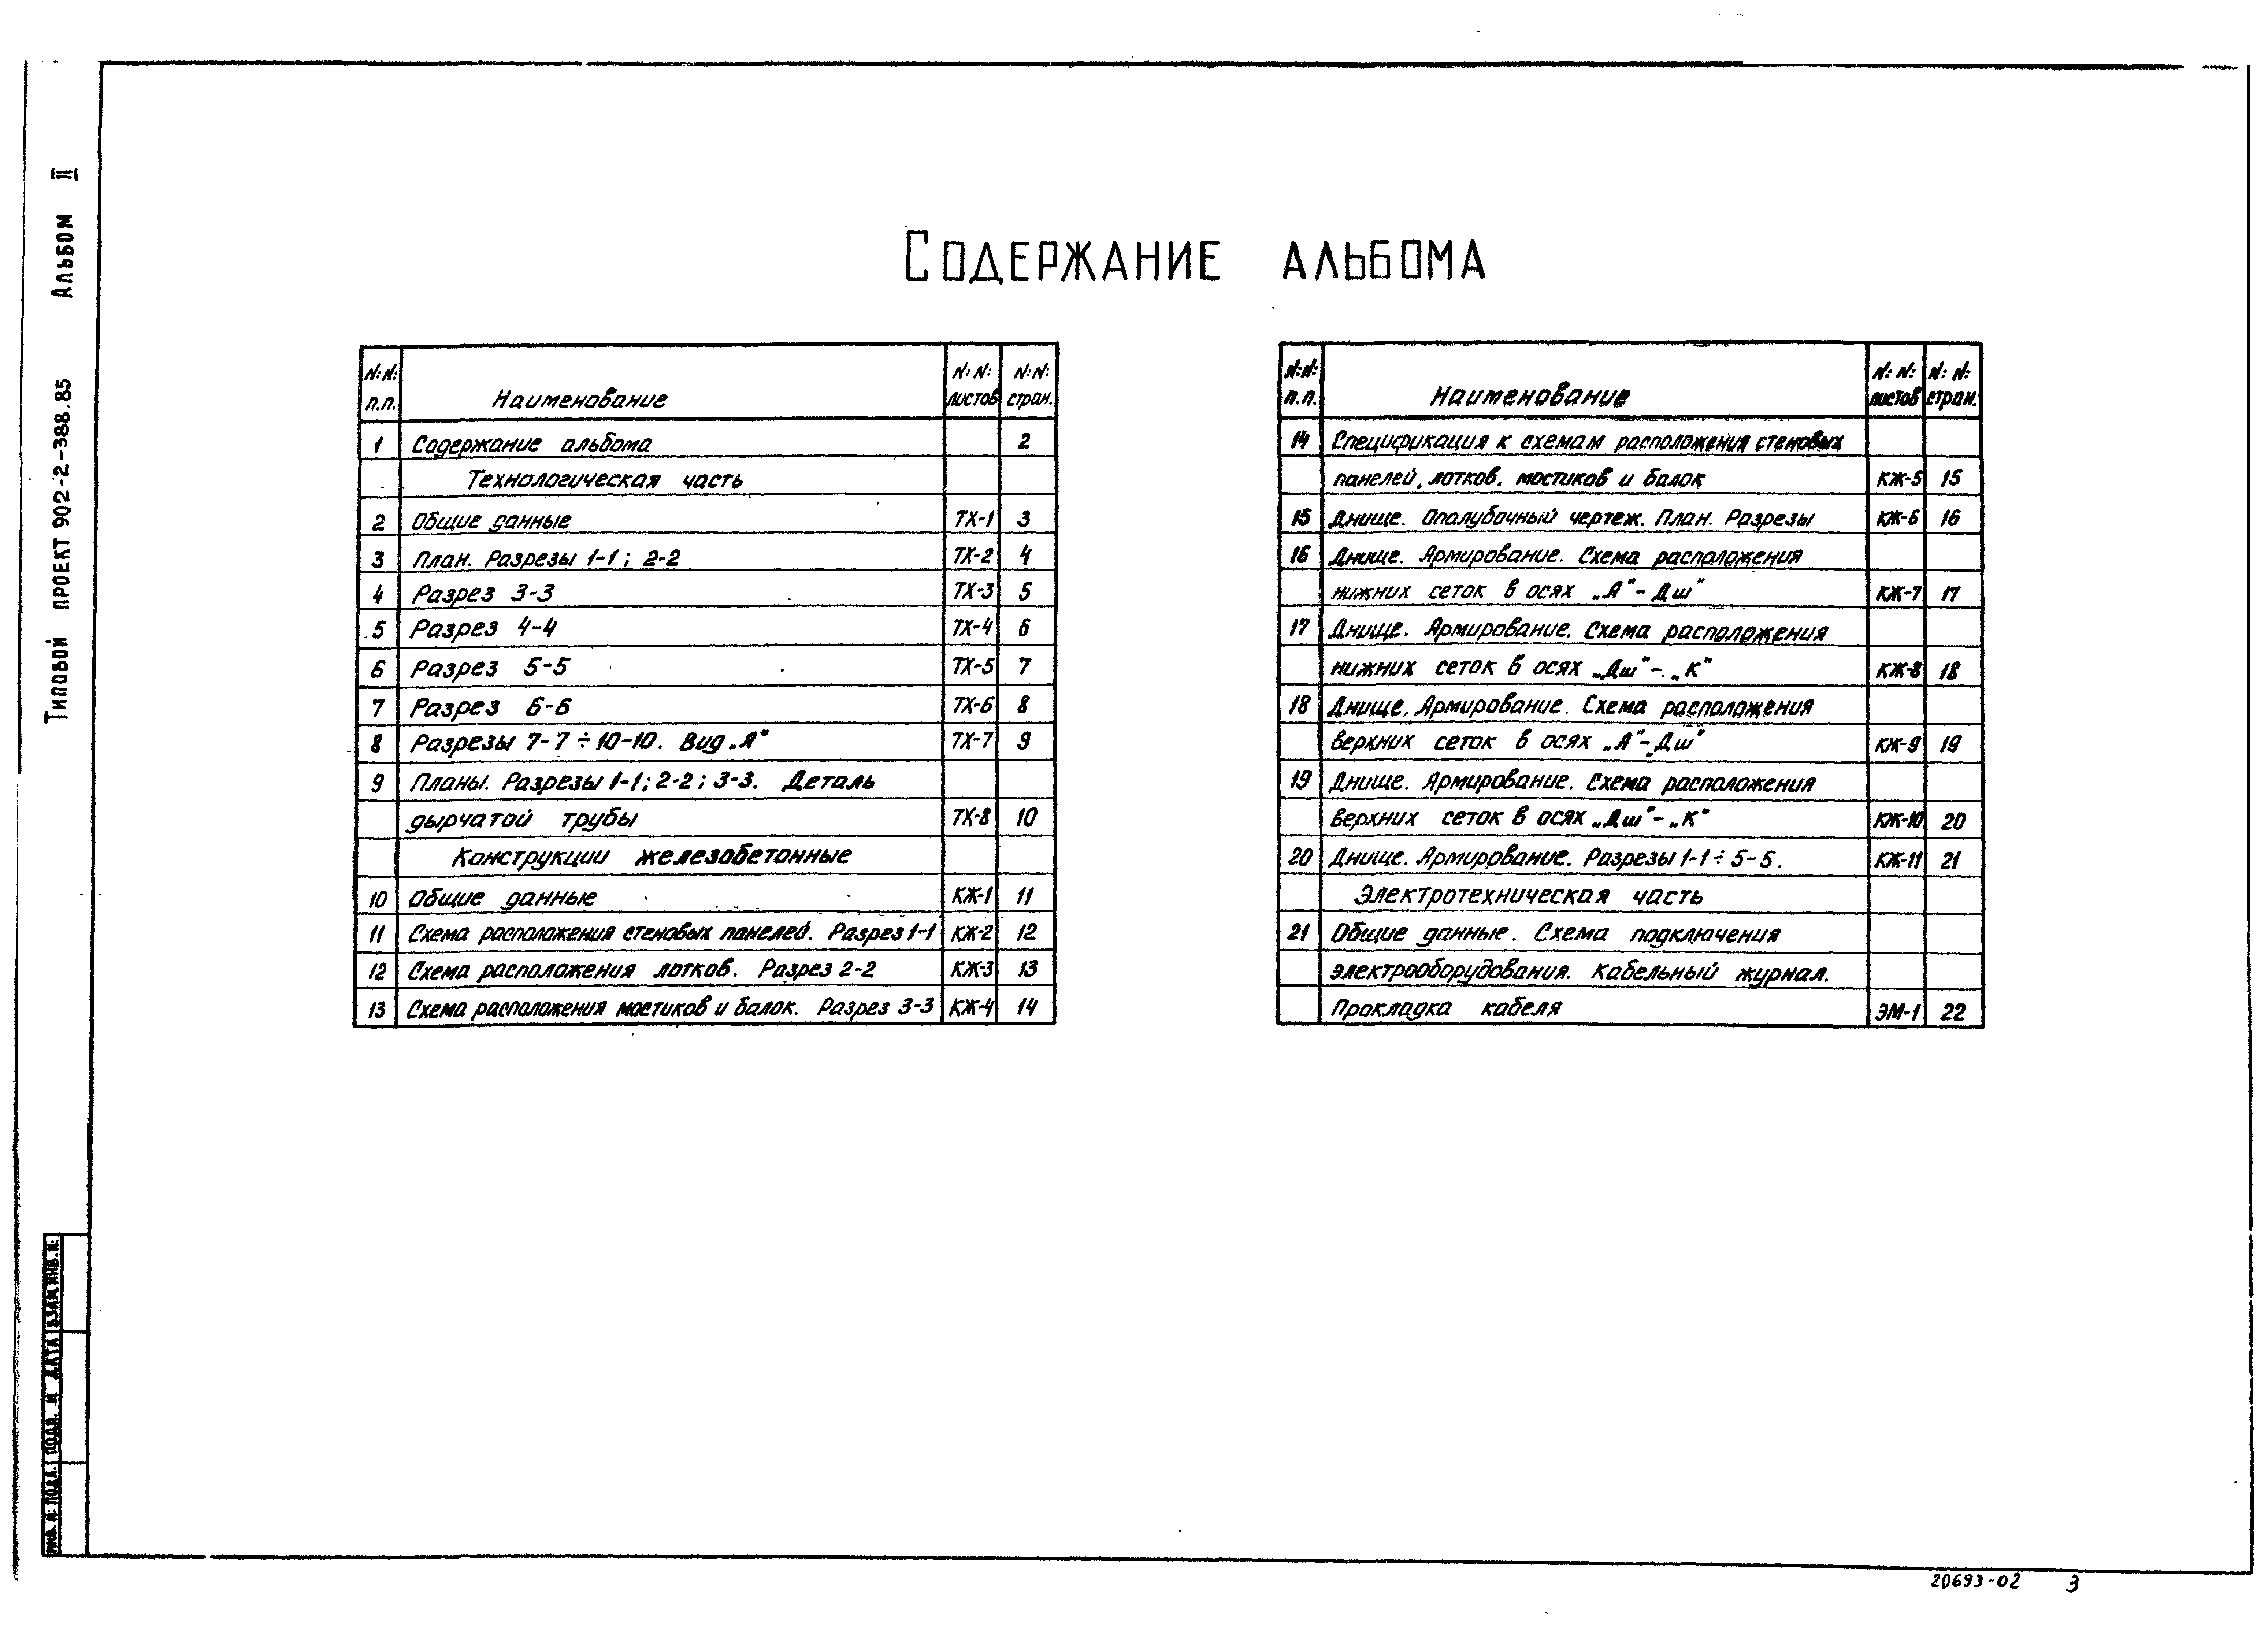 Типовой проект 902-2-388.85 Альбом II
Содержание альбома
N:N: п.п. Наименование N: N: листов N:N: стран.
1 Содержание альбома 2
Технологическая часть
2 Общие данные ТХ-1 3
3 План. Разрезы 1-1; 2-2 ТХ-2 4
4 Разрез 3-3 ТХ-3 5
5 Разрез 4-4 ТХ-4 6
6 Разрез 5-5 ТХ-5 7
7 Разрез 6-6 ТХ-6 8
8 Разрезы 7-7÷10-10. Вид „А" ТХ-7 9
9 Планы. Разрезы 1-1; 2-2; 3-3. Деталь
дырчатой трубы ТХ-8 10
Конструкции железобетонные
10 Общие данные КЖ-1 11
11 Схема расположения стеновых панелей. Разрез 1-1 КЖ-2 12
12 Схема расположения лотков. Разрез 2-2 КЖ-3 13
13 Схема расположения мостиков и балок. Разрез 3-3 КЖ-4 14
N:N: п.п. Наименование N: N: листов N: N: стран.
14 Спецификация к схемам расположения стеновых
панелей, лотков, мостиков и балок КЖ-5 15
15 Днище. Опалубочный чертеж. План. Разрезы КЖ-6 16
16 Днище. Армирование. Схема расположения
нижних сеток в осях „А"-Дш" КЖ-7 17
17 Днище. Армирование. Схема расположения
нижних сеток в осях „Дш"-„К" КЖ-8 18
18 Днище. Армирование. Схема расположения
верхних сеток в осях „А"-„Дш" КЖ-9 19
19 Днище. Армирование. Схема расположения
верхних сеток в осях „Дш"-„К" КЖ-10 20
20 Днище. Армирование. Разрезы 1-1÷5-5. КЖ-11 21
Электротехническая часть
21 Общие данные. Схема подключения
электрооборудования. Кабельный журнал.
Прокладка кабеля ЭМ-1 22
Инв. N: подл. Подп. и дата Взам. инв. N:
20693-02 3